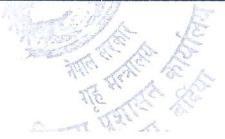 नेपाल सरकार
गृह मन्त्रालय
प्रशासन कार्यालय
बर्दिया